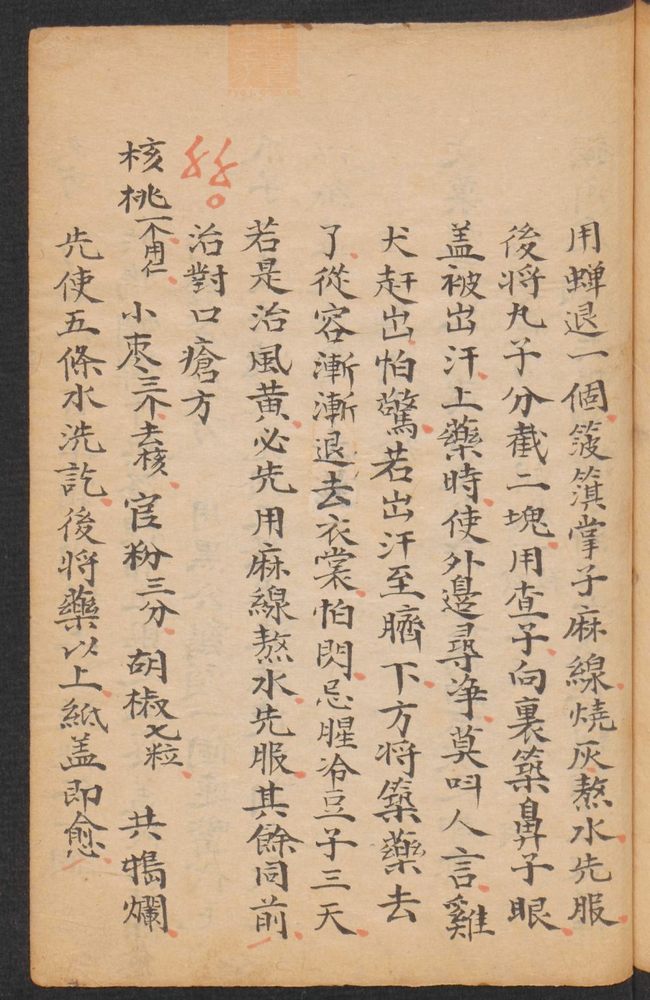 用蟬退一個菠箕掌子麻線燒灰熬水先服
後将丸子分截二塊用查子向裏築鼻子眼
盖被出汗上藥時使外邊尋净莫呌人言雞
犬赶出怕驚若出汗至臍下方将築藥去
了從容漸漸退去衣裳怕閃忌腥冷豆子三天
若是治風黄必先用麻線熬水先服其餘同前
治對口瘡方
核桃一个用仁 小枣三个去核 官粉三分 胡椒七粒 共搗爛
先使五條水洗訖後将藥以上紙盖即愈